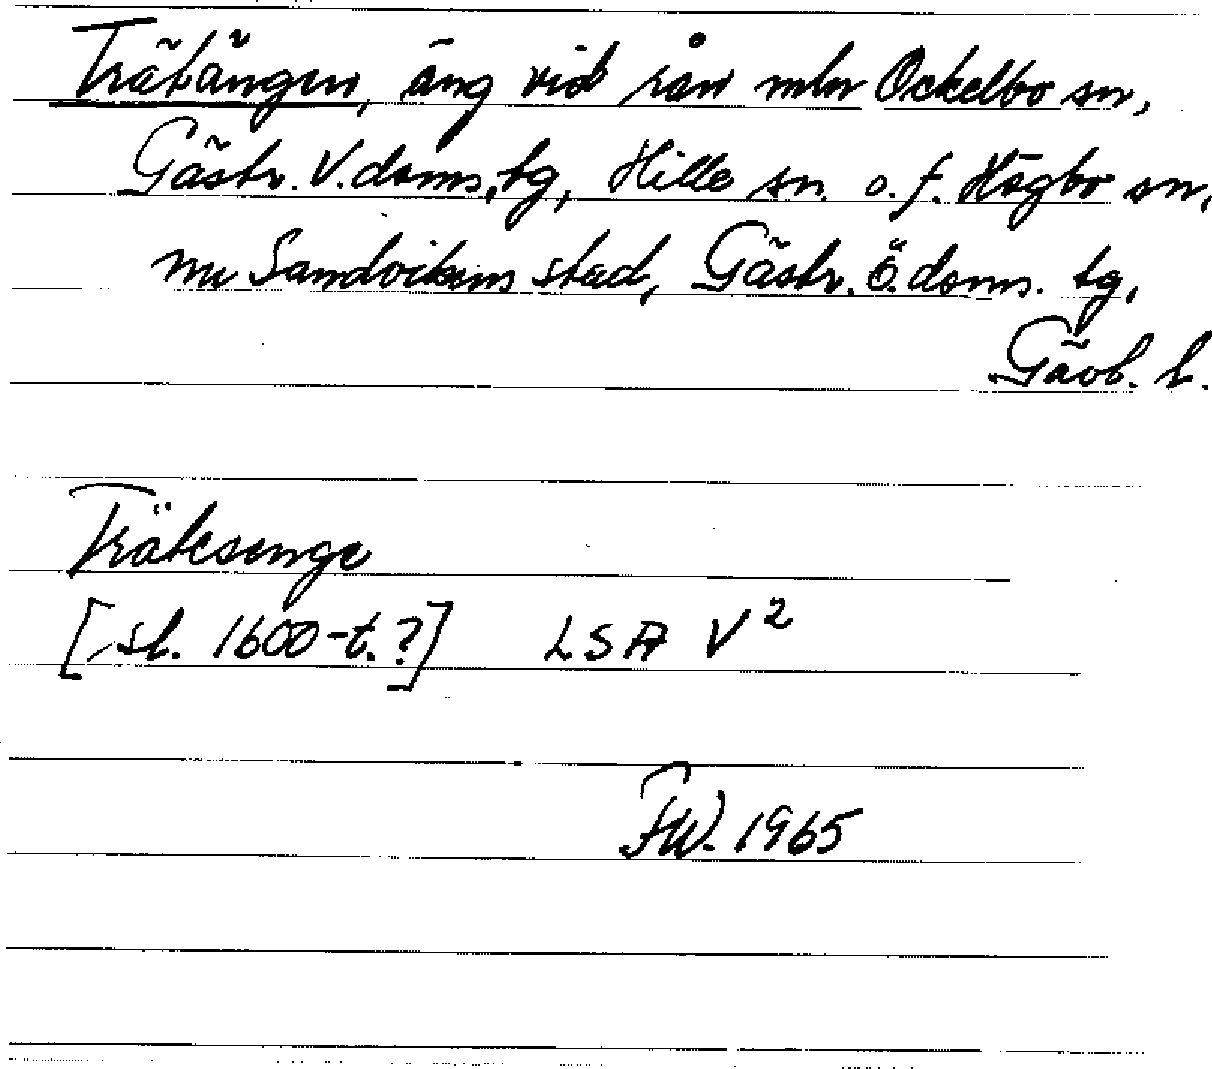 Trätängen, äng vid rån mln Ockelbo sn,
Gästr. V. doms. tg, Hille sn o. f. Högbo sn,
nu Sandvikens stad, Gästr. Ö. doms. tg,
Gävb. l.
Trätesenge
[sl. 1600-t.?] LSA V²
FW. 1965